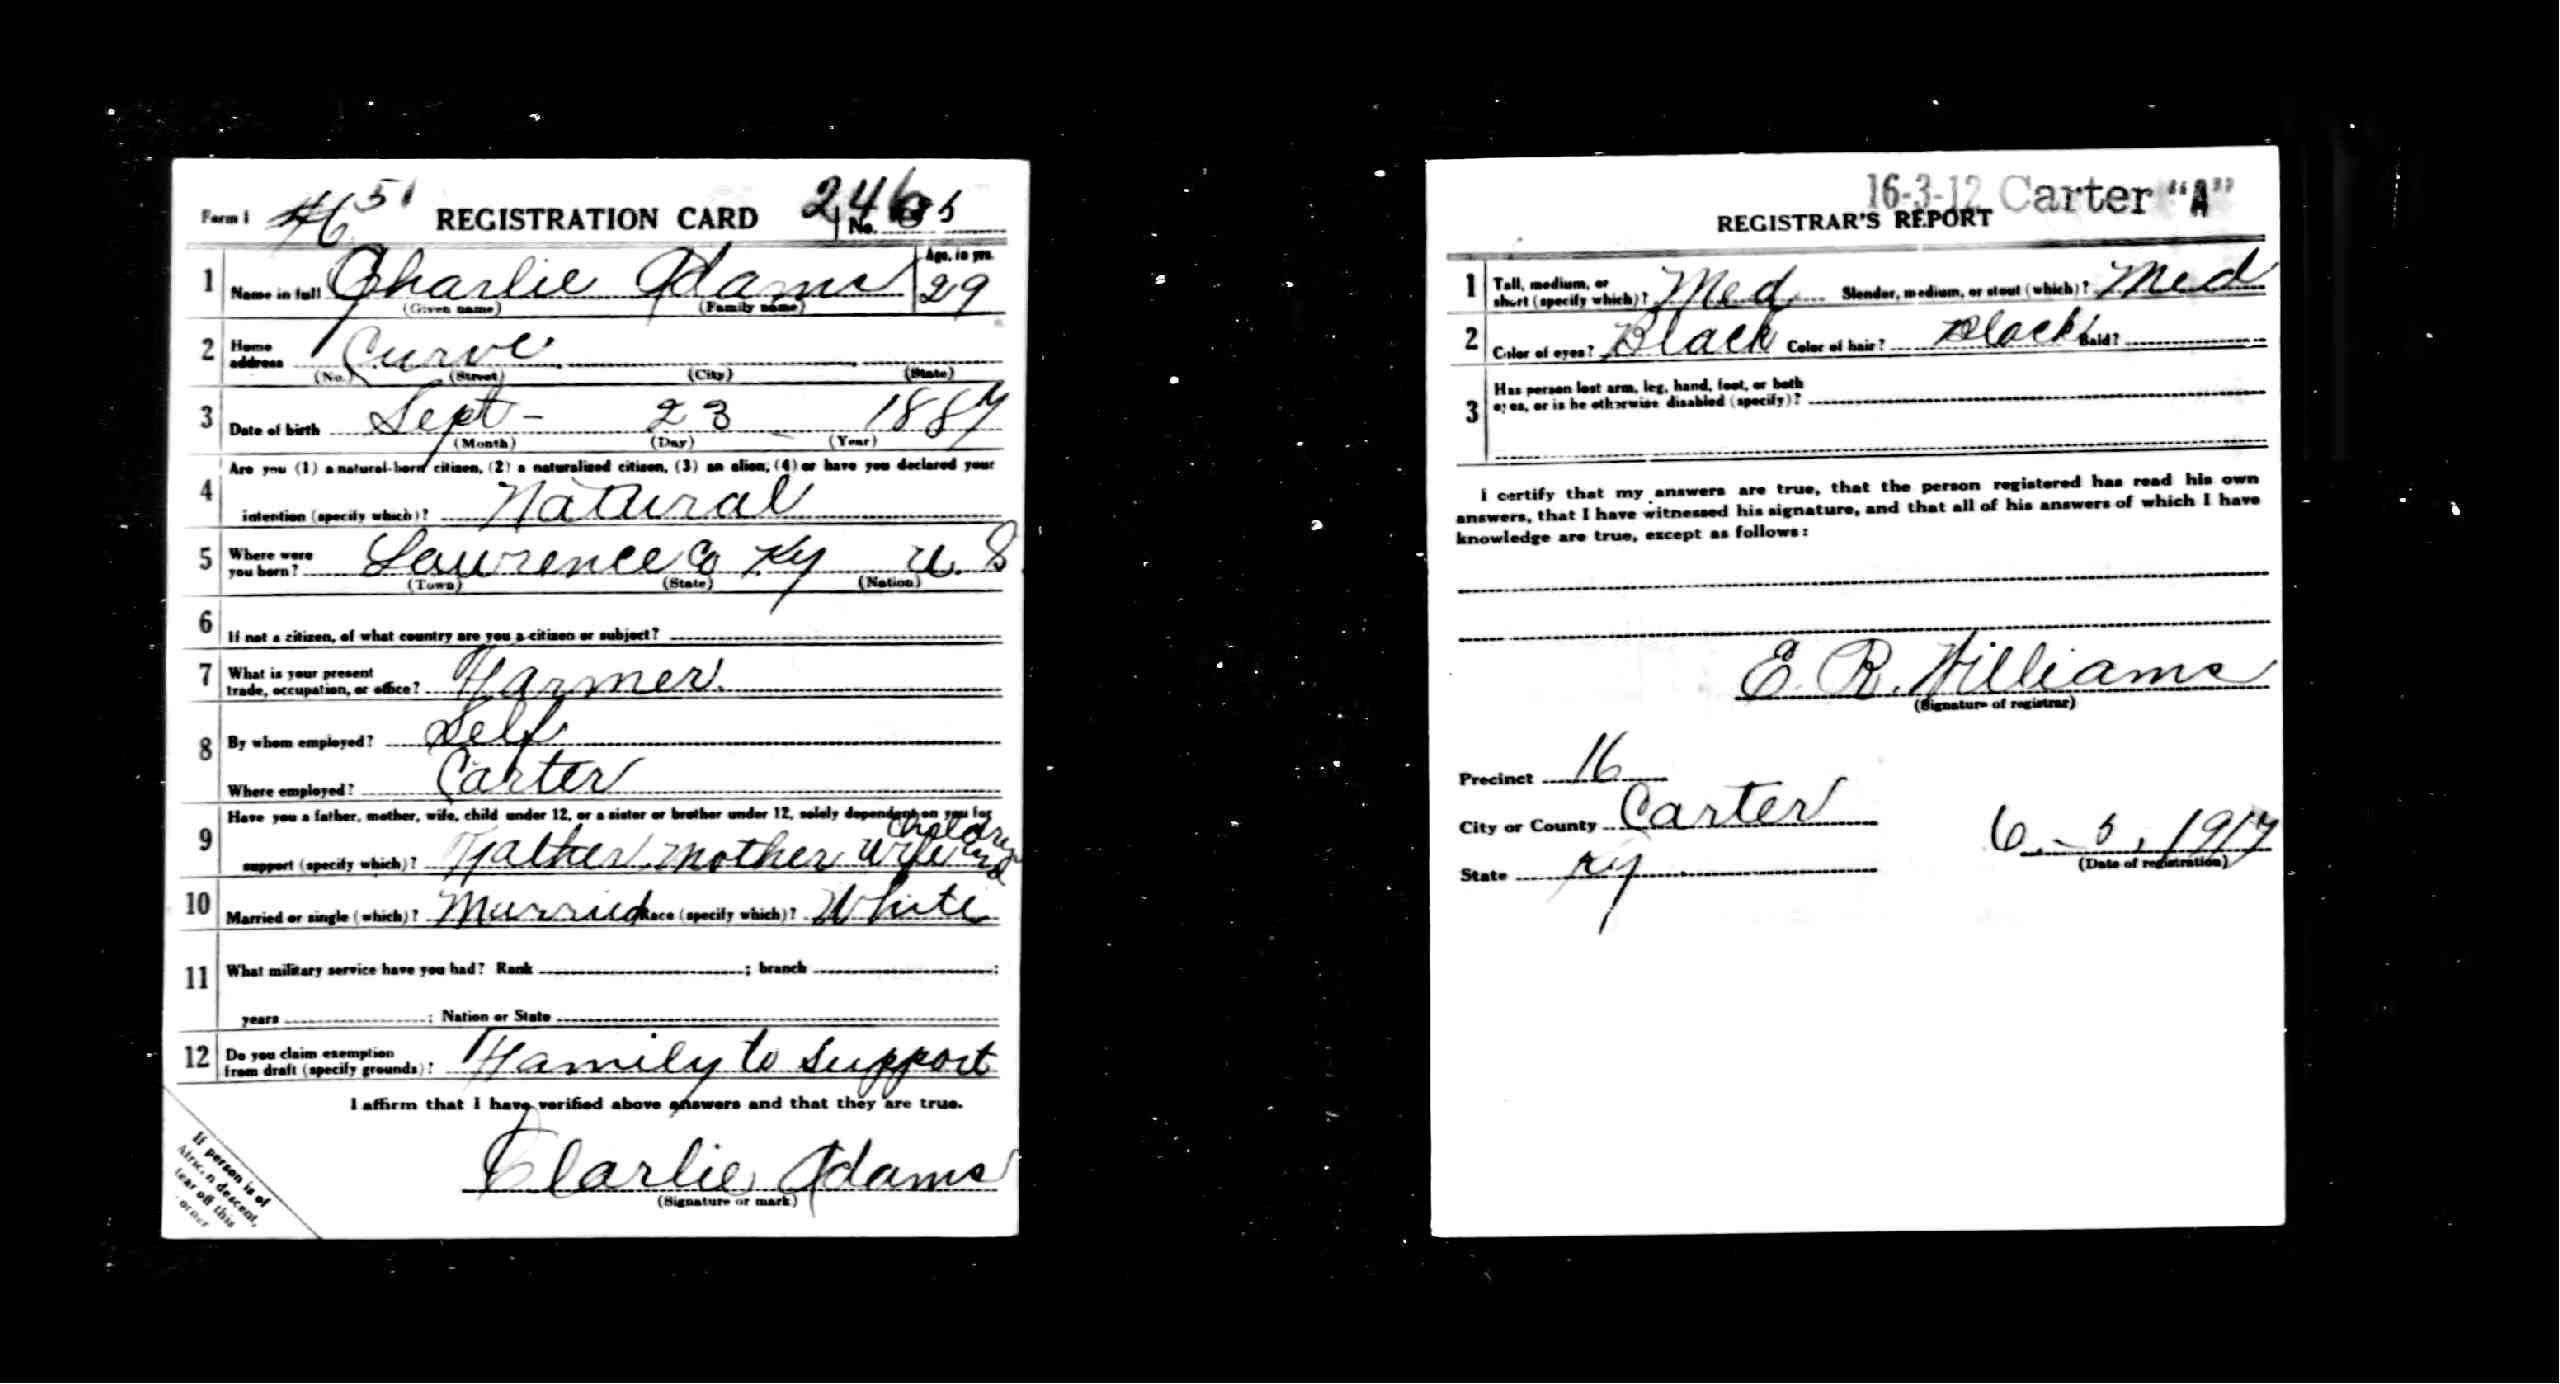 Form 1 51 REGISTRATION CARD No. 246
1 Name in full Charlie Adams Age, in yrs. 29
(Given name) (Family name)
2 Home address Curve
(No.) (Street) (City) (State)
3 Date of birth Sept - 23 1887
(Month) (Day) (Year)
Are you (1) a natural-born citizen, (2) a naturalized citizen, (3) an alien, (4) or have you declared your
4 intention (specify which)? Natural
5 Where were you born? Lawrence Co Ky U. S
(Town) (State) (Nation)
6 If not a citizen, of what country are you a citizen or subject?
7 What is your present trade, occupation, or office? Farmer
8 By whom employed? Self
Where employed? Carter
Have you a father, mother, wife, child under 12, or a sister or brother under 12, solely dependent on you for
9 support (specify which)? Father mother wife and Children
10 Married or single (which)? Married Race (specify which)? White
11 What military service have you had? Rank ; branch ;
years ; Nation or State
12 Do you claim exemption from draft (specify grounds)? Family to Support
I affirm that I have verified above answers and that they are true.
Clarlie Adams
(Signature or mark)
If person is of
African descent,
tear off this
corner
16-3-12 Carter "A"
REGISTRAR'S REPORT
1 Tall, medium, or short (specify which)? Med Slender, medium, or stout (which)? Med
2 Color of eyes? Black Color of hair? Black Bald?
3 Has person lost arm, leg, hand, foot, or both
eyes, or is he otherwise disabled (specify)?
I certify that my answers are true, that the person registered has read his own
answers, that I have witnessed his signature, and that all of his answers of which I have
knowledge are true, except as follows:
E. R. Williams
(Signature of registrar)
Precinct 16
City or County Carter
State Ky
6 - 5, 1917
(Date of registration)